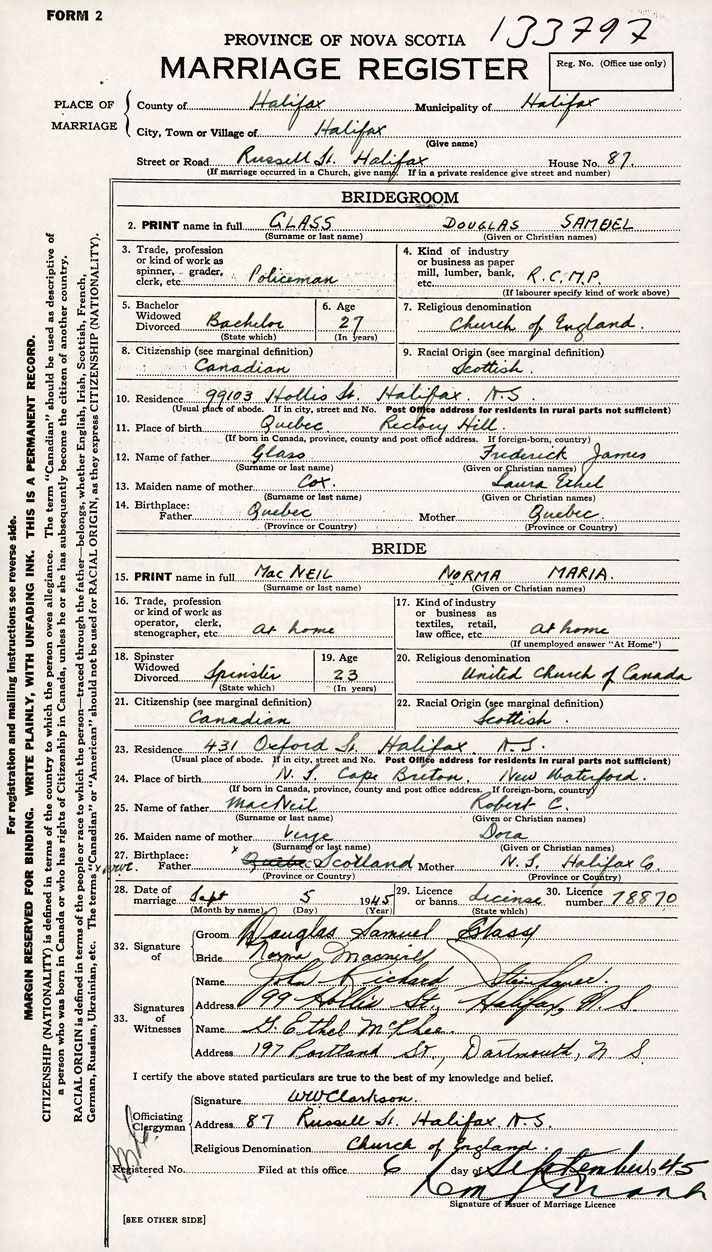 FORM 2
133797
PROVINCE OF NOVA SCOTIA
MARRIAGE REGISTER
Reg. No. (Office use only)
PLACE OF MARRIAGE
County of Halifax Municipality of Halifax
City, Town or Village of Halifax
(Give name)
Street or Road Russell St. Halifax House No. 87.
(If marriage occurred in a Church, give name. If in a private residence give street and number)
BRIDEGROOM
2. PRINT name in full GLASS DOUGLAS SAMUEL
(Surname or last name) (Given or Christian names)
3. Trade, profession or kind of work as spinner, grader, clerk, etc. Policeman
4. Kind of industry or business as paper mill, lumber, bank, etc. R.C.M.P.
(If labourer specify kind of work above)
5. Bachelor Widowed Divorced Bachelor
(State which)
6. Age 27
(In years)
7. Religious denomination
Church of England.
8. Citizenship (see marginal definition)
Canadian
9. Racial Origin (see marginal definition)
Scottish.
10. Residence 99103 Hollis St. Halifax. N.S.
(Usual place of abode. If in city, street and No. Post Office address for residents in rural parts not sufficient)
11. Place of birth Quebec Rectory Hill.
(If born in Canada, province, county and post office address. If foreign-born, country)
12. Name of father Glass Frederick James
(Surname or last name) (Given or Christian names)
13. Maiden name of mother Cox. Laura Ethel
(Surname or last name) (Given or Christian names)
14. Birthplace: Father Quebec Mother Quebec
(Province or Country) (Province or Country)
BRIDE
15. PRINT name in full MacNEIL NORMA MARIA.
(Surname or last name) (Given or Christian names)
16. Trade, profession or kind of work as operator, clerk, stenographer, etc. At home
17. Kind of industry or business as textiles, retail, law office, etc. At home
(If unemployed answer "At Home")
18. Spinster Widowed Divorced Spinster
(State which)
19. Age 23
(In years)
20. Religious denomination
United Church of Canada
21. Citizenship (see marginal definition)
Canadian
22. Racial Origin (see marginal definition)
Scottish.
23. Residence 431 Oxford St. Halifax. N.S.
(Usual place of abode. If in city, street and No. Post Office address for residents in rural parts not sufficient)
24. Place of birth N.S. Cape Breton. New Waterford.
(If born in Canada, province, county and post office address. If foreign-born, country)
25. Name of father MacNeil Robert C.
(Surname or last name) (Given or Christian names)
26. Maiden name of mother Verge Dora
(Surname or last name) (Given or Christian names)
27. Birthplace: Father x Quebec Scotland Mother N.S. Halifax Co.
(Province or Country) (Province or Country)
28. Date of marriage Sept 5 1945
(Month by name) (Day) (Year)
29. Licence or banns License
(State which)
30. Licence number 78870
32. Signature of
Groom Douglas Samuel Glass
Bride Norma Macneil
33. Signatures of Witnesses
Name John Richard
Address 99 Hollis St., Halifax, N.S.
Name G. Ethel McPhee.
Address 197 Portland St., Dartmouth, N S
I certify the above stated particulars are true to the best of my knowledge and belief.
Officiating Clergyman
Signature WWClarkson.
Address 87 Russell St. Halifax. N.S.
Religious Denomination Church of England.
Registered No. Filed at this office 6 day of September 1945
Signature of Issuer of Marriage Licence
[SEE OTHER SIDE]
For registration and mailing instructions see reverse side.
MARGIN RESERVED FOR BINDING. WRITE PLAINLY, WITH UNFADING INK. THIS IS A PERMANENT RECORD.
CITIZENSHIP (NATIONALITY) is defined in terms of the country to which the person owes allegiance. The term "Canadian" should be used as descriptive of
a person who was born in Canada or who has rights of Citizenship in Canada, unless he or she has subsequently become the citizen of another country.
RACIAL ORIGIN is defined in terms of the people or race to which the person—traced through the father—belongs, whether English, Irish, Scottish, French,
German, Russian, Ukrainian, etc. The terms "Canadian" or "American" should not be used for RACIAL ORIGIN, as they express CITIZENSHIP (NATIONALITY).